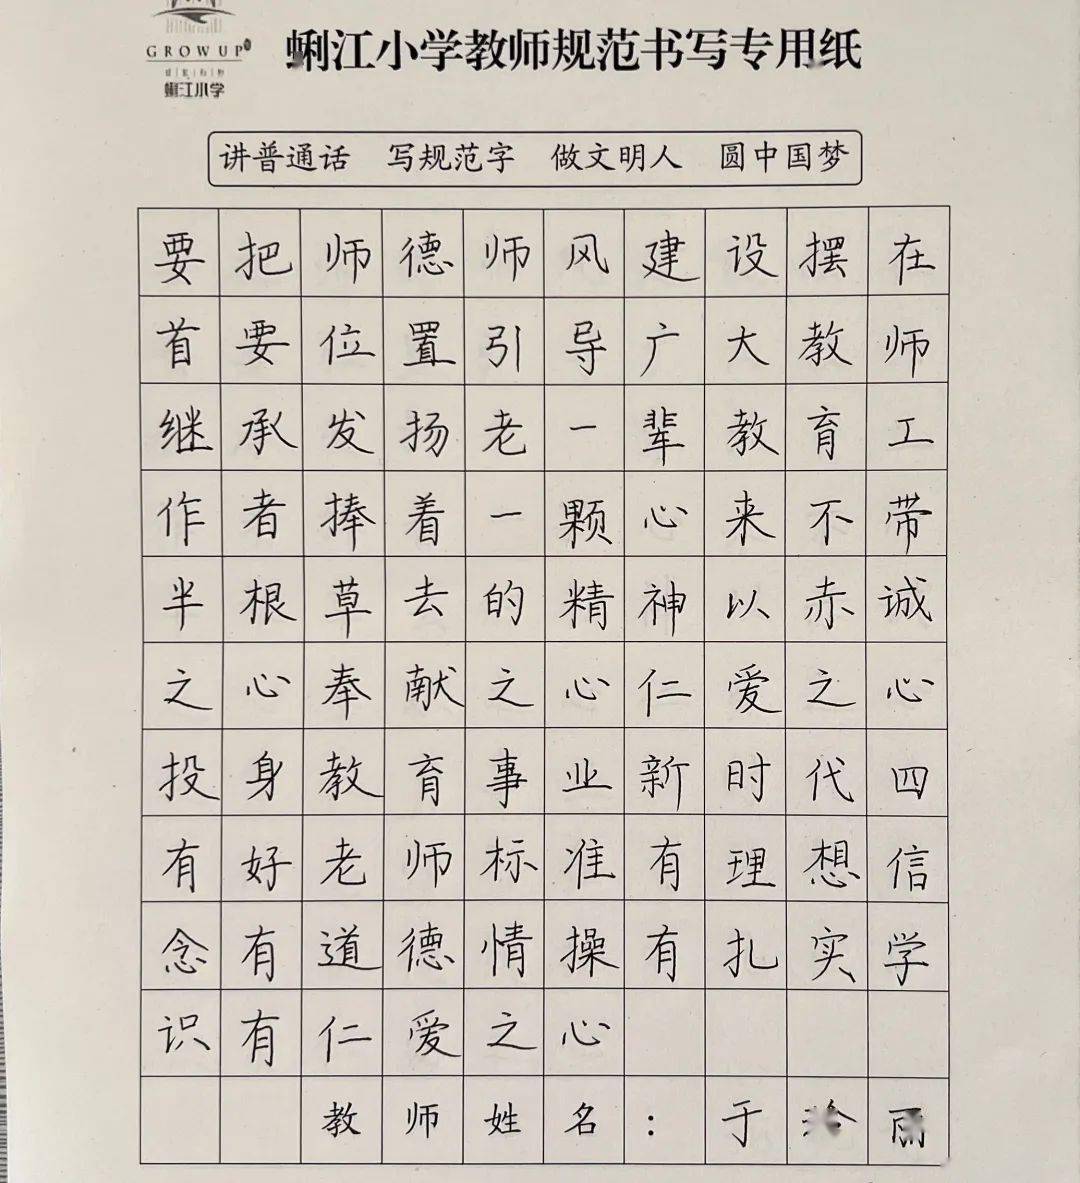 GROW UP
蜊江小学
蜊江小学教师规范书写专用纸
讲普通话 写规范字 做文明人 圆中国梦
要把师德师风建设摆在
首要位置引导广大教师
继承发扬老一辈教育工
作者捧着一颗心来不带
半根草去的精神以赤诚
之心奉献之心仁爱之心
投身教育事业新时代四
有好老师标准有理想信
念有道德情操有扎实学
识有仁爱之心
教师姓名：于 丽